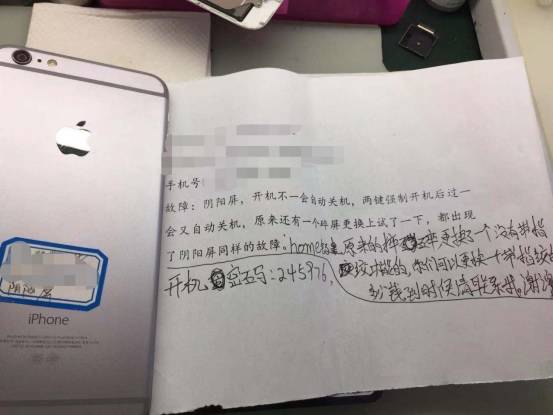 手机号
故障：阴阳屏，开机不一会自动关机，两键强制开机后过一
会又自动关机，原来还有一个坏屏更换上试了一下，都出现
了阴阳屏同样的故障；home 原来的
更换了一个没有带指
开机 密码：245976，
纹功能的，你们可以更换一个带指纹的
多少钱到时候 联系我。谢谢
阴阳屏
iPhone